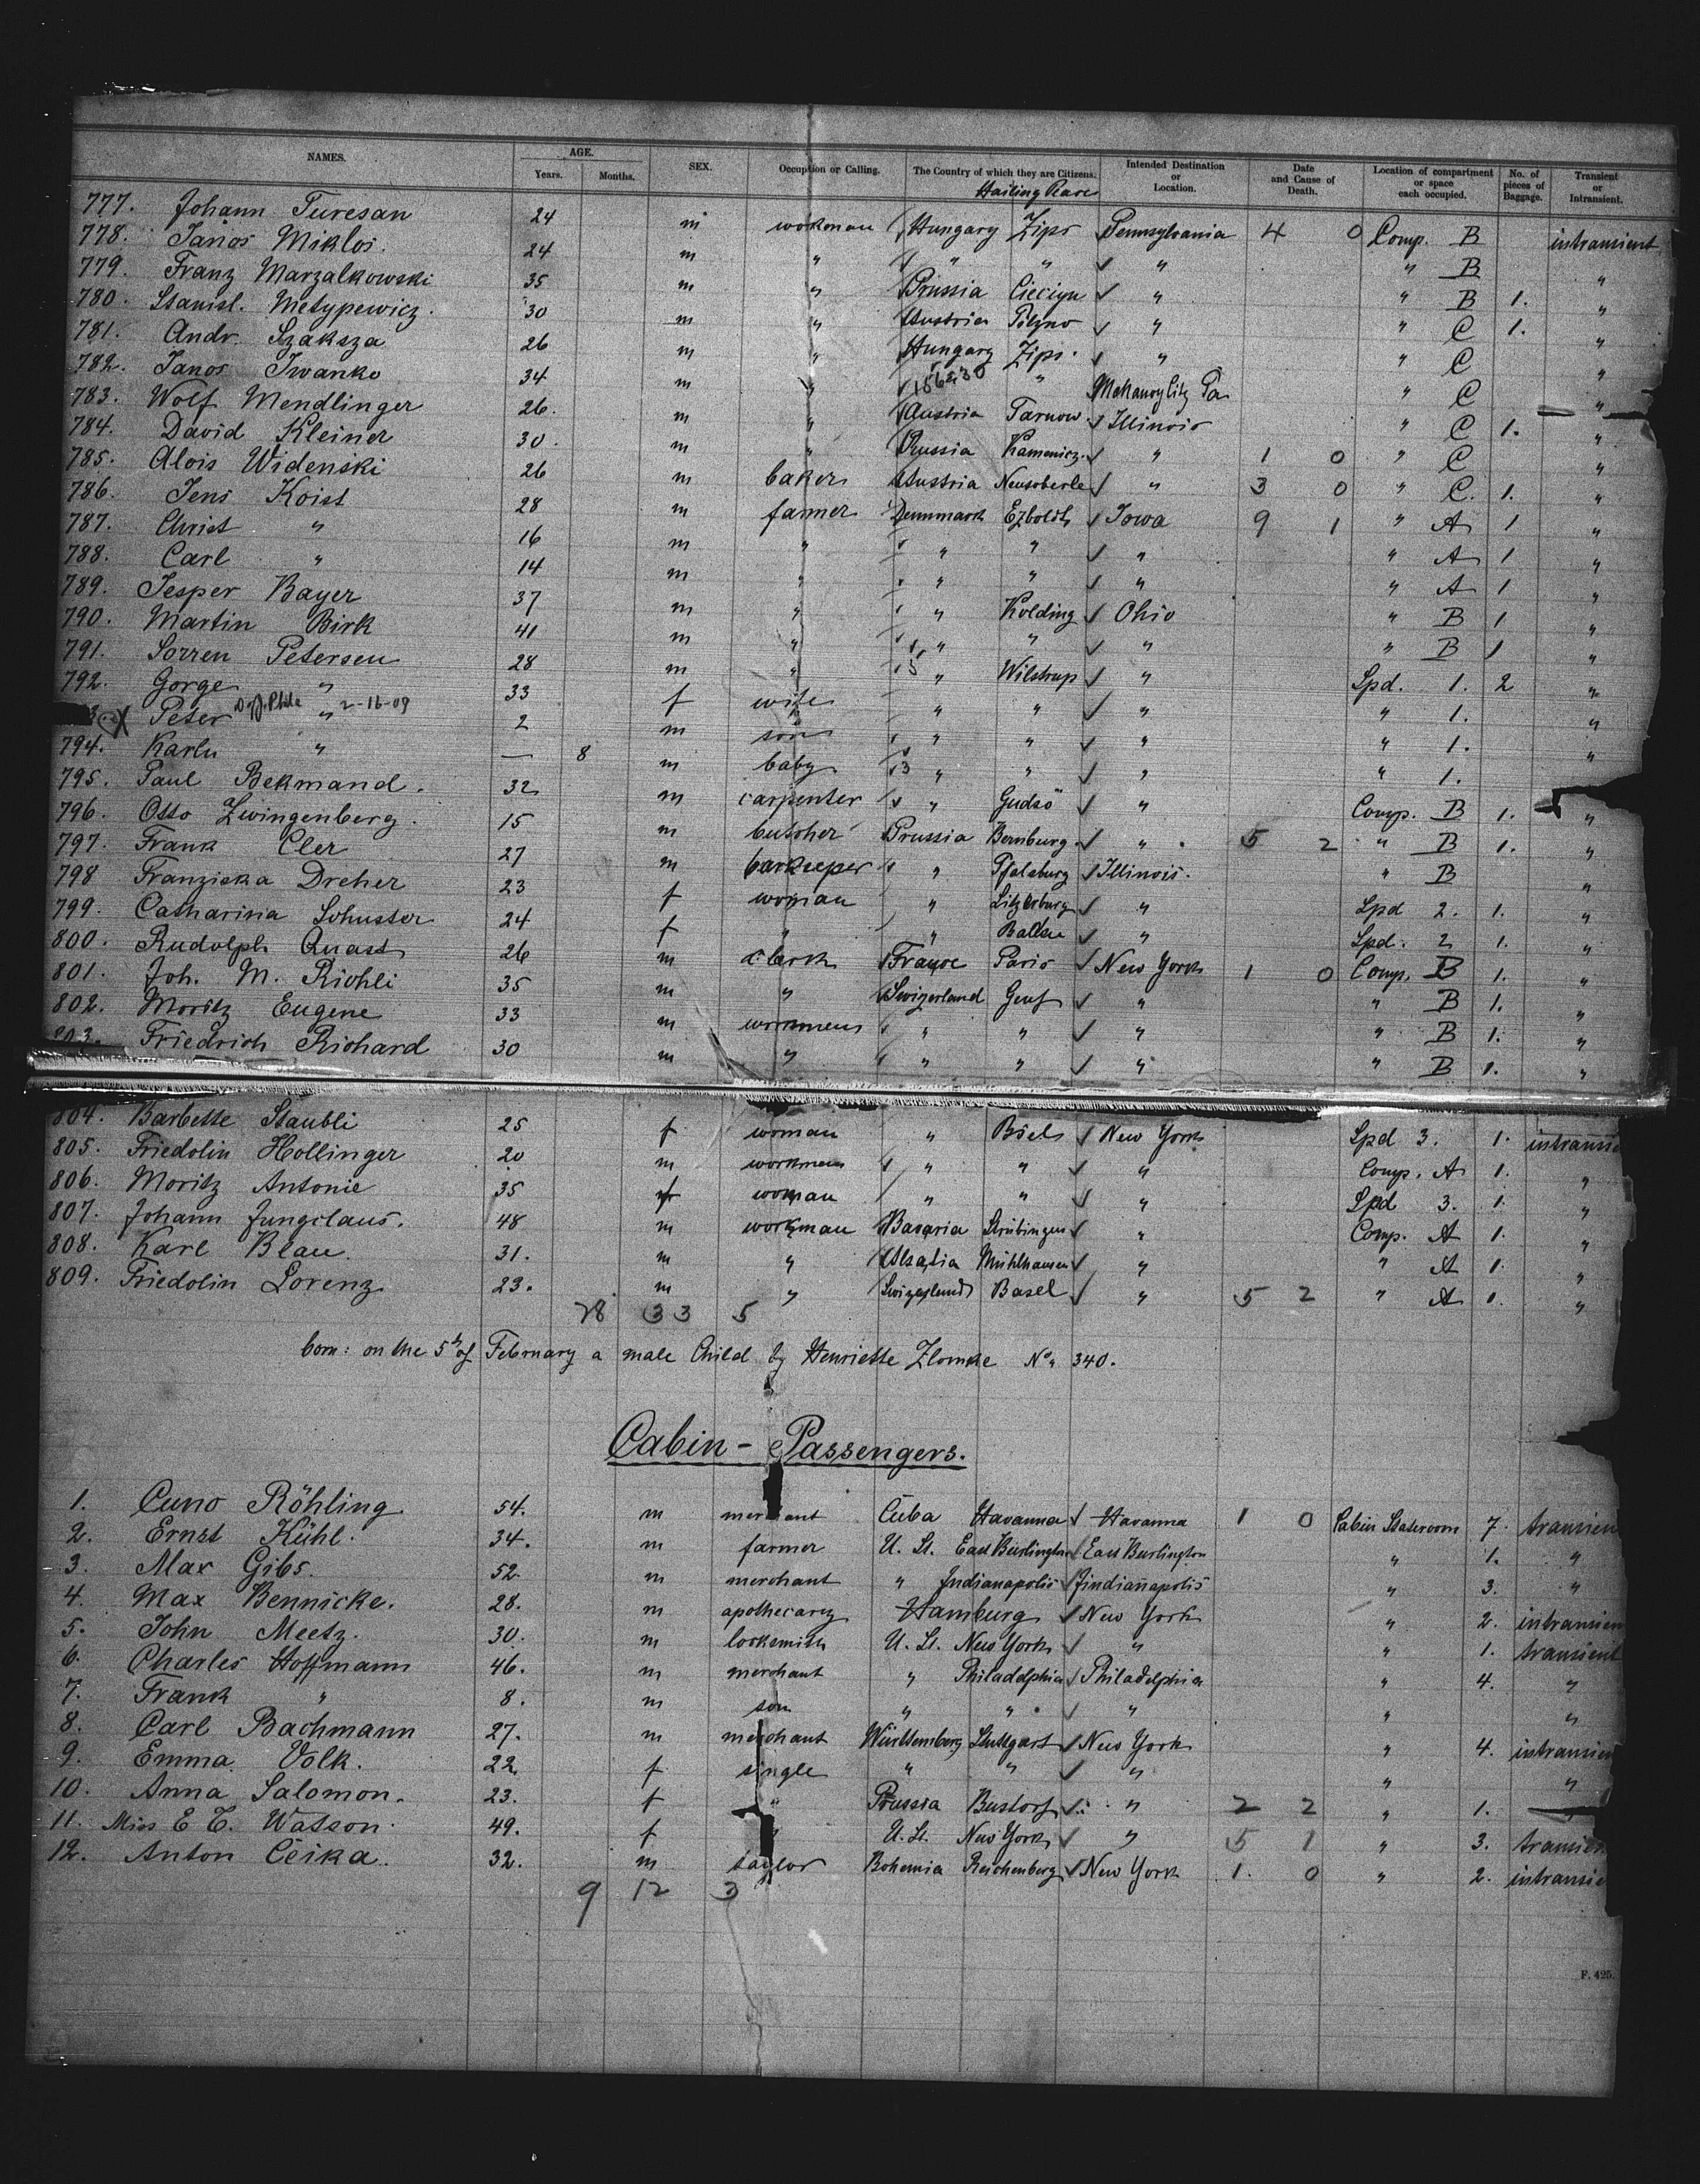 NAMES. AGE. SEX. Occupation or Calling. The Country of which they are Citizens. Intended Destination or Location. Date and Cause of Death. Location of compartment or space each occupied. No. of pieces of Baggage. Transient or Intransient.
Years. Months. Hailing Place
777. Johann Turesan 24 m workman Hungary Zips Pennsylvania 4 0 Comp. B intransient
778. Janos Miklos. 24 m " " " " " B "
779. Franz Marzalkowski 35 m " Prussia Cieciyn " " B 1. "
780. Stanisl. Metypewicz. 30 m " Austria Pilzno " " C 1. "
781. Andr. Szaksza 26 m " Hungary Zips. " " C "
782. Janos Iwanko 34 m " " Mahanoy City Pa " C "
783. Wolf Mendlinger 26. m " Austria Tarnow Illinois " C 1. "
784. David Kleiner 30. m " Russia Kamenicz. " 1 0 " C "
785. Alois Widenski 26 m baker Austria " 3 0 " C. 1. "
786. Jens Koist 28 m farmer Dennmark Iowa 9 1 " A 1 "
787. Christ " 16 m " " " " " A 1 "
788. Carl " 14 m " " " " " A 1 "
789. Jesper Bayer 37 m " " Kolding Ohio " B 1 "
790. Martin Birk 41 m " " " " " B 1 "
791. Sorren Petersen 28 m " " Wilstrup " Spd. 1. 2 "
792. Gorge " 33 f wife " " " " 1. "
X Peter " 2-16-09 2 m son " " " " 1. "
794. Karln " — 8 m baby " " " " 1. "
795. Paul Bekmand. 32 m carpenter " Gudsö " Comp. B 1. "
796. Otto Zwingenberg. 15 m butcher Prussia Bernburg. " 5 2 " B 1. "
797. Frank Cler 27 m barkeeper " Pfalzburg Illinois. " B "
798 Franziska Dreher 23 f woman " " Spd 2. 1. "
799. Catharina Schuster 24 f " " " Spd. 2 1. "
800. Rudolph Quast 26 m clerk France Paris New York 1 0 Comp. B 1. "
801. Joh. M. Riohli 35 m " Swizerland Genf " " B 1. "
802. Moritz Eugene 33 m workmen " " " " B 1. "
803. Friedrich Richard 30 m " " " " " B 1. "
804. Barbette Staubli 25 f woman " Biel New York Spd 3. 1. intransie
805. Friedolin Hollinger 20 m workmen " " " Comp. A 1. "
806. Moritz Antonie 35 f woman " " " Spd 3. 1. "
807. Johann Jungclaus. 48 m workman Bavaria " Comp. A 1. "
808. Karl Blau. 31. m " Alsatia Mühlhausen " " A 1. "
809. Friedolin Lorenz 23. m " Swizerland Basel " 5 2 " A 1. "
78 33 5
born: on the 5th of February a male Child by Henriette Zlomke No. 340.
Cabin - Passengers.
1. Cuno Röhling 54. m merchant Cuba Havanna Havanna 1 0 Cabin Stateroom 7. transien
2. Ernst Kühl. 34. m farmer U. St. East Burlington East Burlington " 1. "
3. Max Gibs. 52. m merchant " Indianapolis Jindianapolis " 3. "
4. Max Bennicke. 28. m apothecary Hamburg New York " 2. intransien
5. John Meetz. 30. m locksmith U. St. New York " " 1. transient
6. Charles Hoffmann 46. m merchant " Philadelphia Philadelphia " 4. "
7. Frank " 8. m son " " " " "
8. Carl Bachmann 27. m merchant Württemberg Stuttgart New York " 4. intransien
9. Emma Volk. 22. f single " " " " "
10. Anna Salomon. 23. f " Prussia Bustorf " 2 2 " 1. "
11. Miss E T. Watson. 49. f " U. St. New York " 5 1 " 3. transien
12. Anton Ceika. 32. m taylor Bohemia Reichenberg New York 1. 0 " 2. intransie
9 12 3
F. 425.